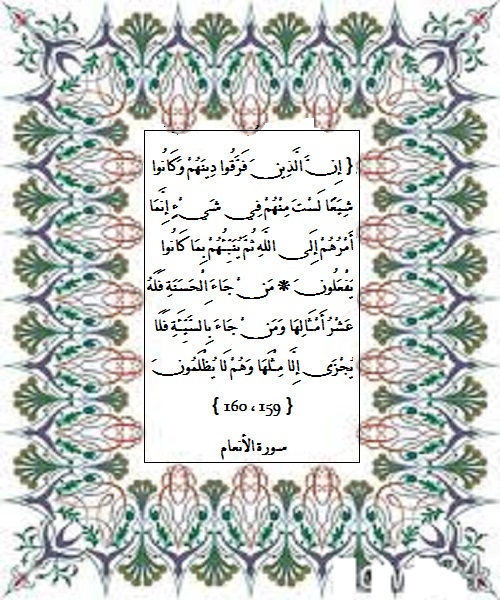 { إِنَّ الَّذِينَ فَرَّقُوا دِينَهُمْ وَكَانُوا
شِيَعًا لَسْتَ مِنْهُمْ فِي شَيْءٍ إِنَّمَا
أَمْرُهُمْ إِلَى اللَّهِ ثُمَّ يُنَبِّئُهُمْ بِمَا كَانُوا
يَفْعَلُونَ * مَنْ جَاءَ بِالْحَسَنَةِ فَلَهُ
عَشْرُ أَمْثَالِهَا وَمَنْ جَاءَ بِالسَّيِّئَةِ فَلَا
يُجْزَى إِلَّا مِثْلَهَا وَهُمْ لَا يُظْلَمُونَ
{ 159 ، 160 }
سورة الأنعام